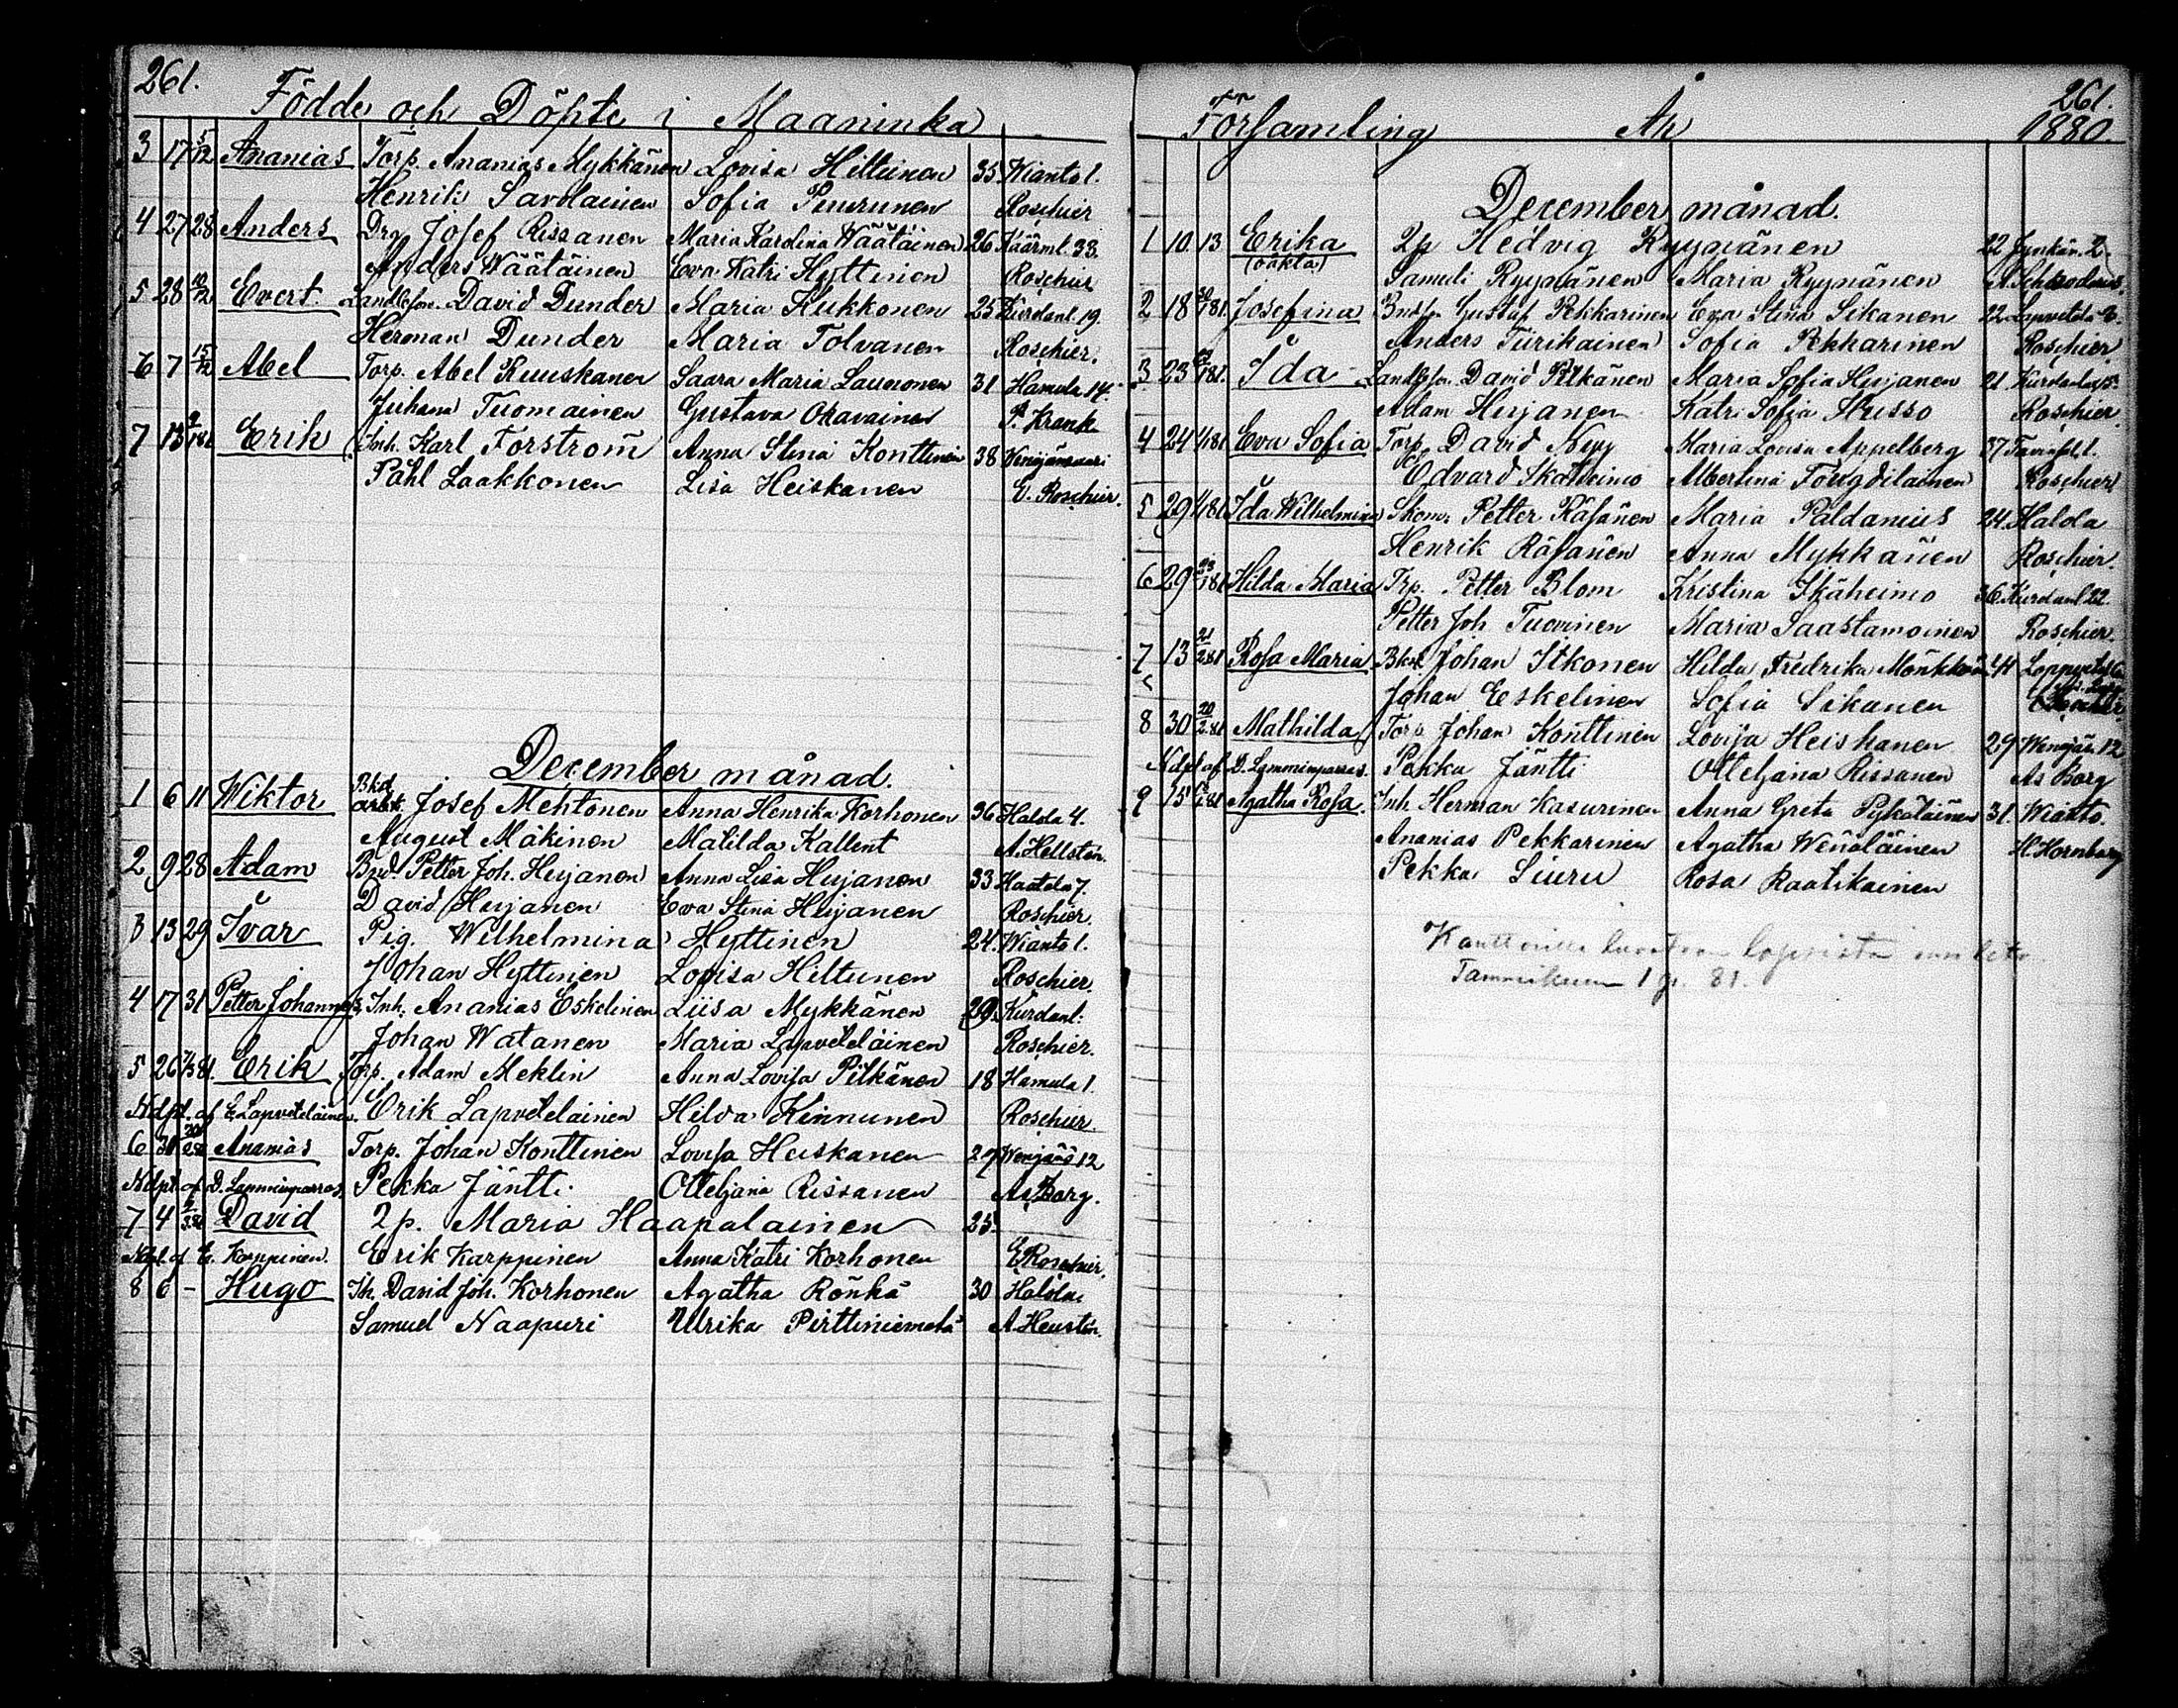 261.
Födde och Döpte i Maaninka
3 17 5/12 Ananias Torp. Ananias Mykkänen Lovisa Hiltunen 35 Wianto 1.
Henrik Savolainen Sofia Roschier
4 27 28 Anders Drg Josef Rissanen Maria Karolina Wäätäinen 26 Käärml. 33.
Anders Wäätäinen Eva Katri Hyttinen Roschier
5 28 Evert David Dunder Maria Kukkonen 25 Kurdanl. 19.
Herman Dunder Maria Tolvanen Roschier.
6 7 15/12 Abel Torp. Abel Kuuskanen Saara Maria Lauronen 31 Hamula 14.
Juhana Tuomainen Gustava Okavainen P. Krank
7 13 Erik Inh. Karl Forström Anna Stina Konttinen 38 Venäjänsaari
Påhl Laakkonen Lisa Heiskanen E. Roschier.
December månad.
1 6 11 Wiktor Bkd. arbt. Josef Mehtonen Anna Henrika Korhonen 36 Halola 4.
August Mäkinen Matilda Kallent A. Hellsten.
2 9 28 Adam Bnd. Petter Joh. Hujanen Anna Lisa Hujanen 33 Haatala 7.
David Hujanen Eva Stina Hujanen Roschier.
3 13 29 Ivar Pig. Wilhelmina Hyttinen 24. Wianto 1.
Johan Hyttinen Lovisa Hiltunen Roschier.
4 17 31 Petter Johannes Inh. Ananias Eskelinen Liisa Mykkänen 29. Kurdanl:
Johan Watanen Maria Lapveteläinen Roschier.
5 26 Erik Torp. Adam Meklin Anna Lovisa Pitkänen 18 Hamula 1.
Ndpt. af E. Lapveteläinen. Erik Lapveteläinen Hilda Kinnunen Roschier.
6 30 Ananias Torp. Johan Konttinen Lovisa Heiskanen 29 Wenjäns 12
Ndpt af D. Lamminparras. Pekka Jäntti Otteljana Rissanen As Borg.
7 4 David 2p. Maria Haapalainen 25.
Ndpt. af E. Karppinen. Erik Karppinen Anna Katri Korhonen E. Roschier.
8 6 - Hugo Ih. David Joh. Korhonen Agatha Rönkä 30 Halola.
Samuel Naapuri Ulrika Pirttiniemelä
261.
Församling År 1880.
December månad.
1 10. 13 Erika 2p Hedvig Ryynänen 22 Jynkän. 2.
(oäkta) Samuli Ryynänen Maria Ryynänen
2 18 Josefina Gustaf Pekkarinen Eva Stina Sikanen 22
Anders Tiirikainen Sofia Pekkarinen Roschier
3 23 Ida David Pitkänen Maria Sofia Hujanen 21
Adam Hujanen Katri Sofia Husso Roschier
4 24 1/181 Eva Sofia Torp David Maria Lovisa Appelberg 37
Edvard Albertina Roschier
5 29 1/181 Ida Wilhelmina Skom. Petter Räsänen Maria Paldanius 24 Halola
Henrik Räsänen Anna Mykkänen Roschier.
6 29 Hilda Maria Trp. Petter Blom Kristina Ikäheimo 36 Kurdanl 22.
Petter Joh Tuovinen Maria Saastamoinen Roschier.
7 13 Rosa Maria Johan Itkonen Hilda Fredrika Mönkkönen 41
Johan Eskelinen Sofia Sikanen
8 30 Mathilda Torp. Johan Konttinen Lovisa Heiskanen 29 Wenäjän. 12
Ndpt af D. Lamminparras. Pekka Jäntti Otteljana Rissanen As Borg
9 15 Agatha Rosa. Inh. Herman Kasurinen Anna Greta Pykäläinen 31 Wianto.
Ananias Pekkarinen Agatha Wenäläinen H. Hornborg
Pekka Siuru Rosa Raatikainen
Tammikuun 1 p. 81.